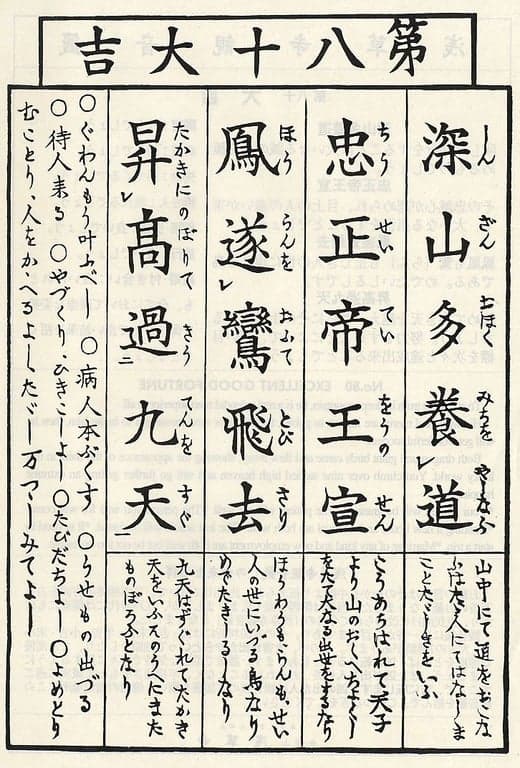 第八十大吉
深山多養レ道
しん ざん おほく みちを やしなふ
山中にて道をおこな
忠正帝王宣
ちう せい てい をうの せん
こうあらはれて天子
より山のおくへちよくし
をたて大なる出世をするなり
鳳遂レ鸞飛去
ほう らんを おふて とび さる
ほうわもらんも、せい
人の世にいづる鳥なり
昇レ高過二九天一
たかきにのぼりて きう てんを すぐ
九天はすぐれて大かき
天をいふその上へにまた
ものぼらふとなり
○ぐわんもう叶ふべし ○病人本ぶくす ○うせもの出づる
○待人来る ○やづくり、ひきこしよし ○たびだちよし ○よめとり
むことり、人をかゝへるよし たゞし万つゝしみてよし